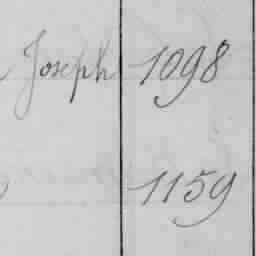 Joseph 1098
1159